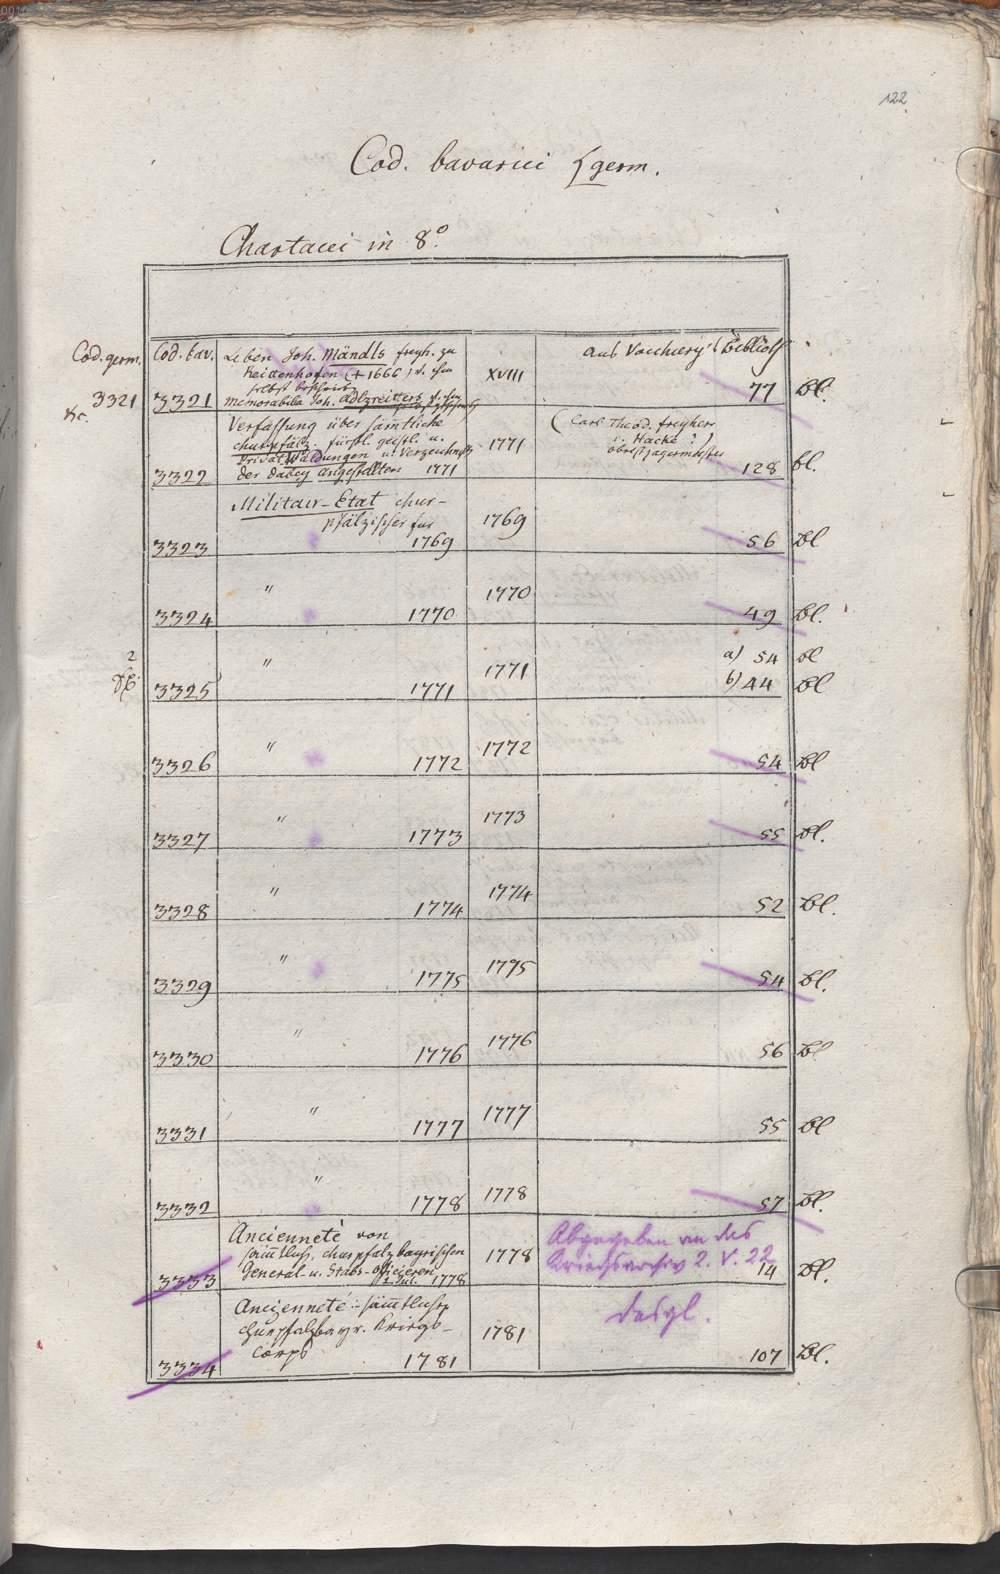 122
Cod. bavarici (germ.
Chartacei in 8º.
Cod. germ.
3321
Cod. bav.
3321
Leben Joh. Mändls freyh. zu
(+ 1666) v. ihm
selbst beschrieb.
Memorabilia Joh. Adlzreitters
XVIII
aus Biblioth
77 Bl.
3322
Verfassung über sämtliche
churpfälz. fürstl. geistl. u.
Privat Waldungen u. Verzeichniß
der dabey angestellten 1771
1771
(Carl Theod. freyherr
v. Hacke ?)
obrist jägermeister
128 bl.
3323
Militair-Etat chur-
pfälzischer fur
1769
1769
56 Bl
3324 " 1770 1770 49 Bl.
2
3325 " 1771 1771
a) 54 Bl
b) 44 Bl
3326 " 1772 1772 54 Bl
3327 " 1773 1773 55 Bl.
3328 " 1774 1774 52 Bl.
3329 " 1775 1775 54 Bl.
3330 " 1776 1776 56 Bl
3331 " 1777 1777 55 Bl
3332 " 1778 1778 57 Bl.
3333
Ancienneté von
sämtlich. churpfalzbayrischen
General- u. Stabs-officieren
1. Jul. 1778
1778
Abgegeben an das
Kriegsarchiv 2. V. 22
14 Bl.
3334
Ancienneté sämtlicher
churpfalzbayr. Kriegs-
Corps 1781
1781
desgl.
107 Bl.